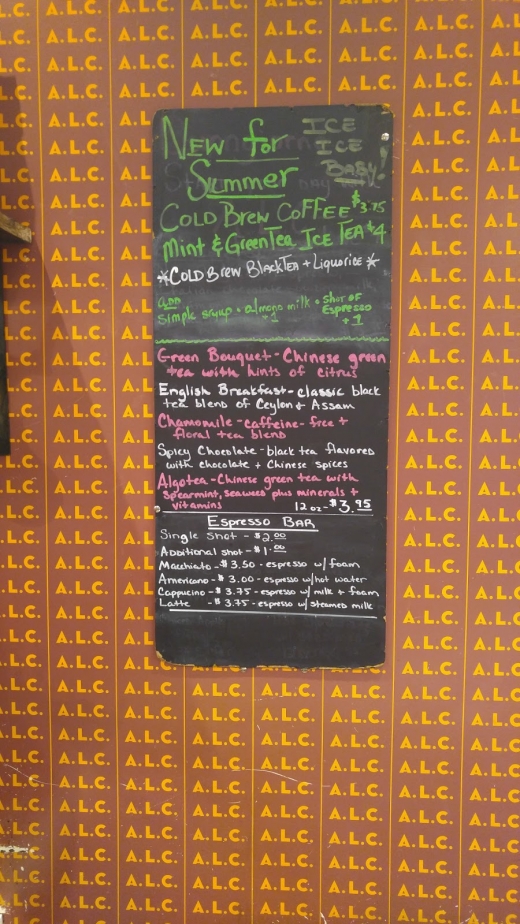 New for
Summer
ICE
ICE
BABY!
Cold Brew Coffee $3.75
Mint & Green Tea Ice Tea $4
*Cold Brew Black Tea + Liquorice*
add
Simple syrup • almond milk +1 • shot of Espresso +1
Green Bouquet - Chinese green
tea with hints of citrus
English Breakfast - classic black
tea blend of Ceylon + Assam
Chamomile - caffeine-free +
floral tea blend
Spicy Chocolate - black tea flavored
with chocolate + Chinese spices
Algotea - Chinese green tea with
Spearmint, seaweed plus minerals +
vitamins 12 oz - $3.95
Espresso Bar
Single Shot - $2.00
Additional shot - $1.00
Macchiato - $3.50 - espresso w/ foam
Americano - $3.00 - espresso w/hot water
Cappucino - $3.75 - espresso w/ milk + foam
Latte - $3.75 - espresso w/ steamed milk
A.L.C.